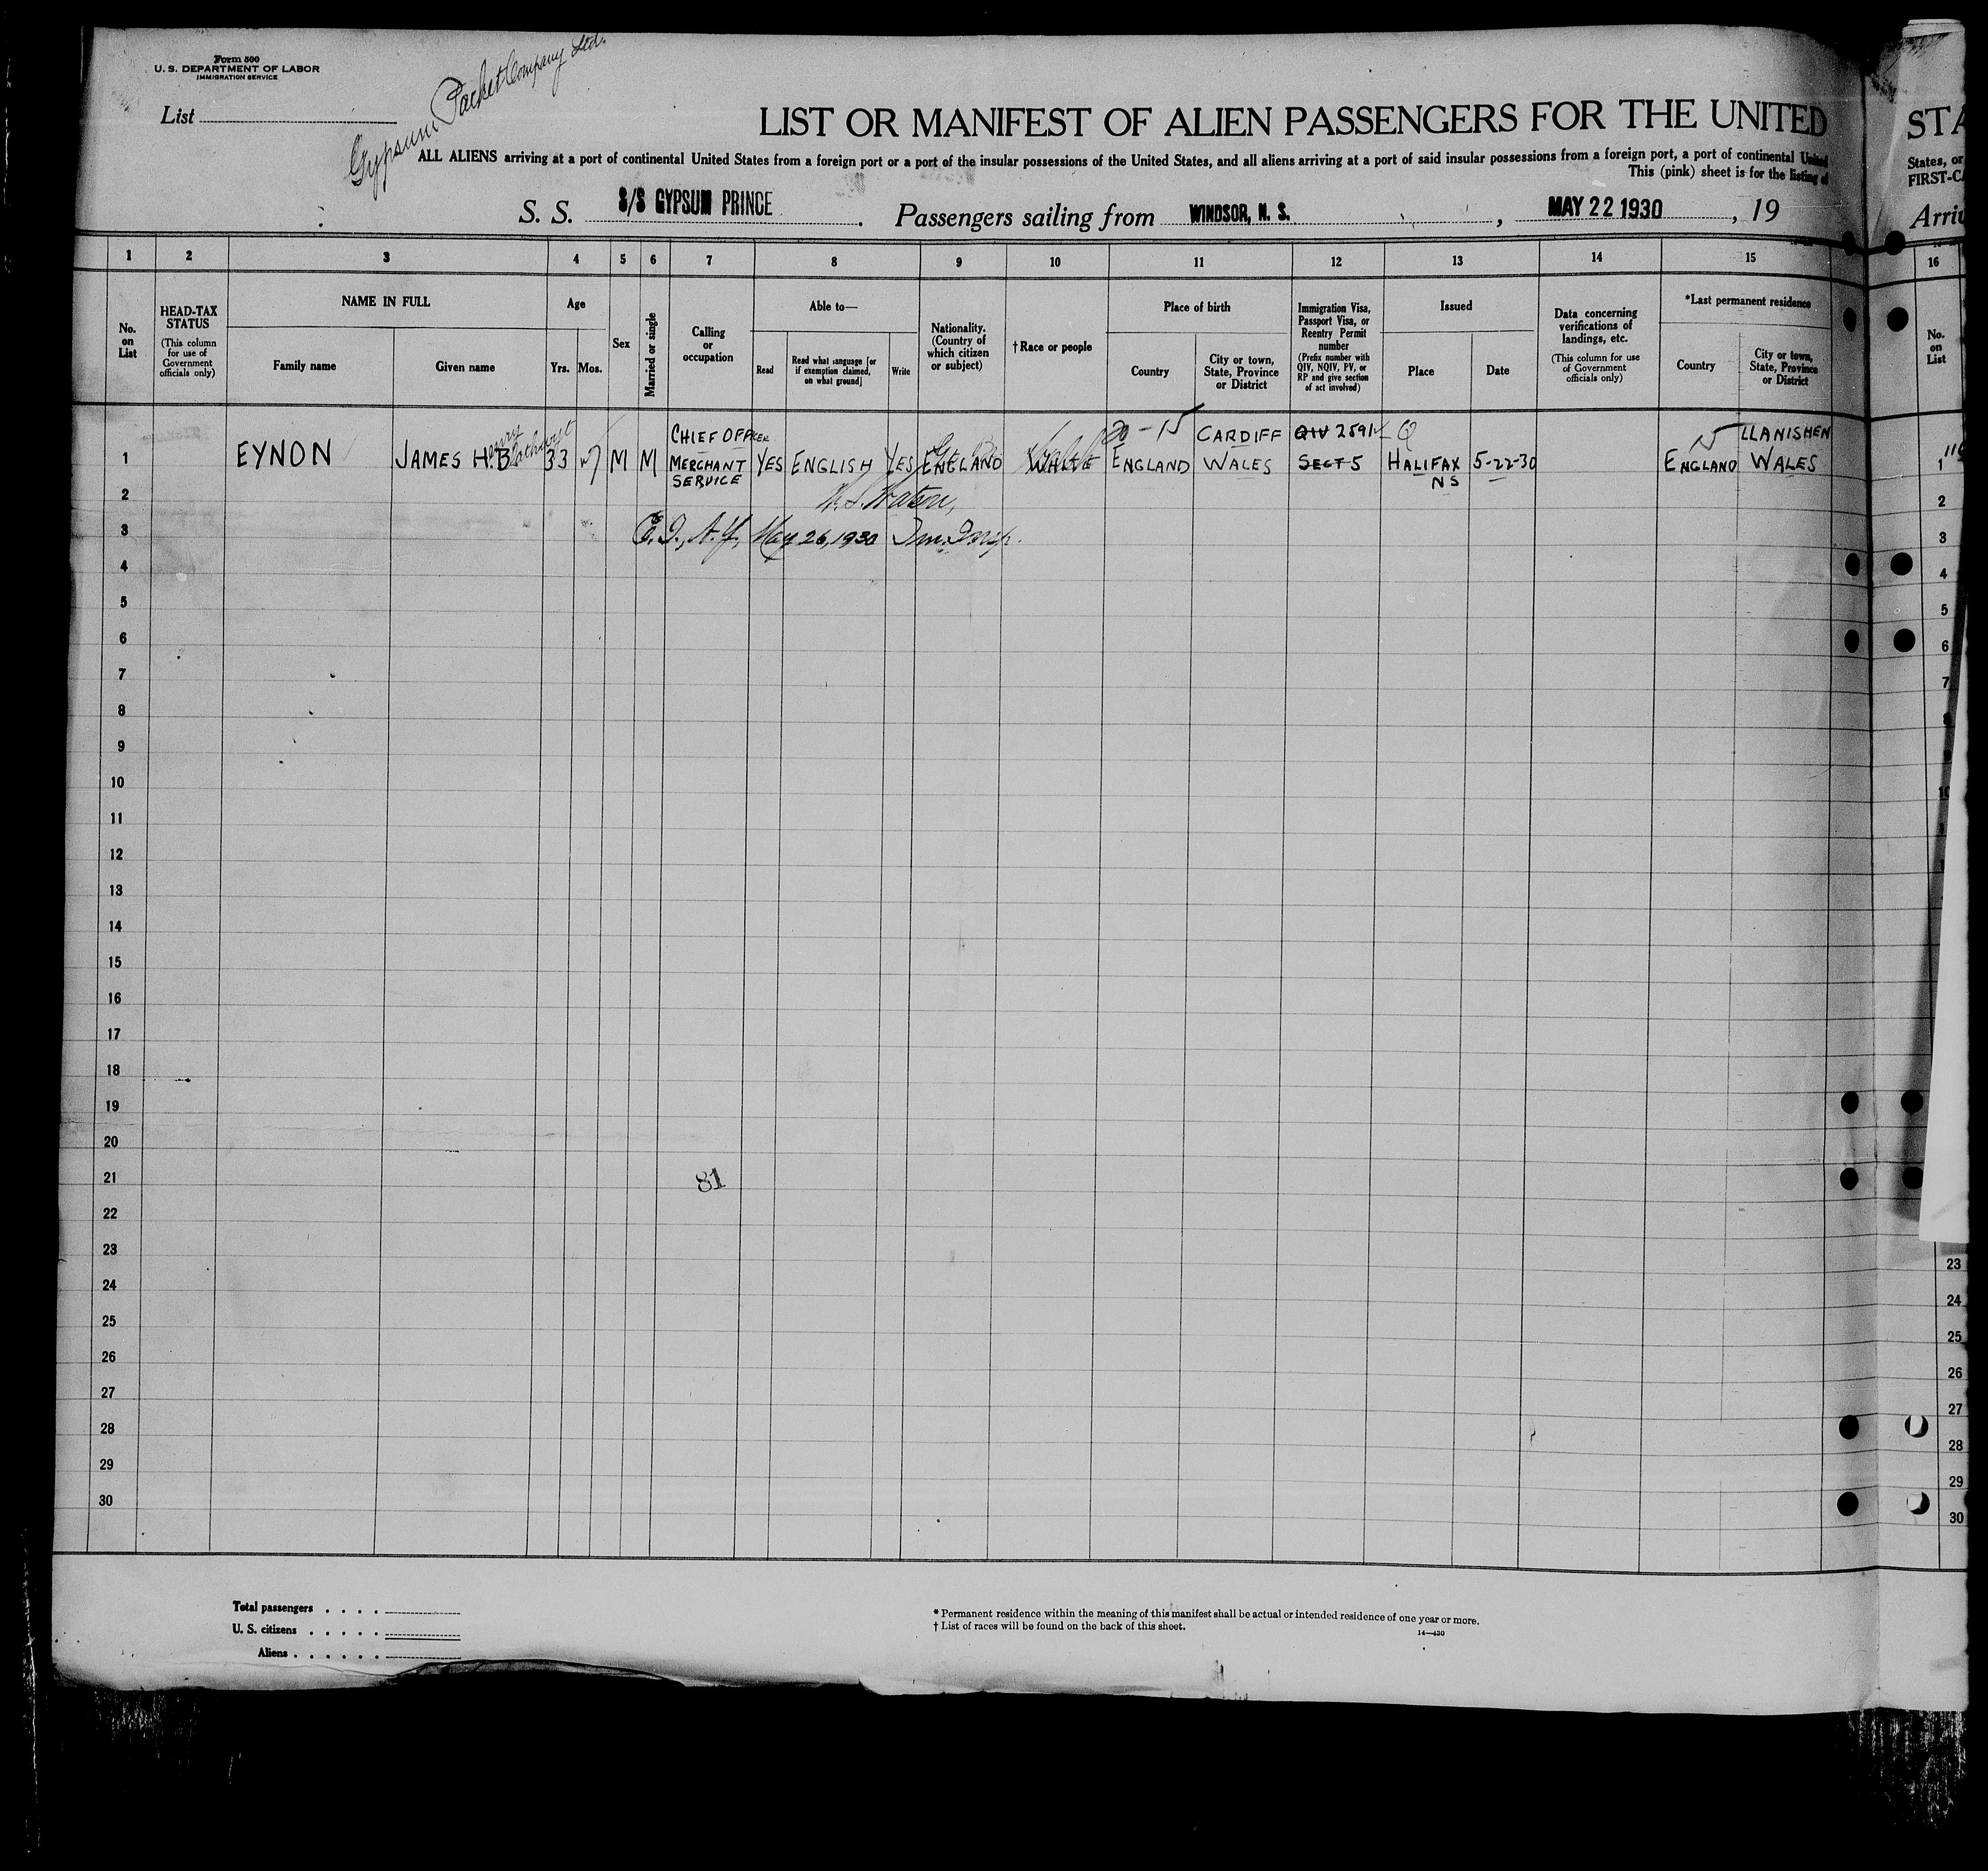 Form 500
U. S. DEPARTMENT OF LABOR
IMMIGRATION SERVICE
List
Gypsum Packet Company Ltd.
LIST OR MANIFEST OF ALIEN PASSENGERS FOR THE UNITED
STA
ALL ALIENS arriving at a port of continental United States from a foreign port or a port of the insular possessions of the United States, and all aliens arriving at a port of said insular possessions from a foreign port, a port of continental United
States, or
This (pink) sheet is for the listing of
FIRST-CA
S. S. S/S GYPSUM PRINCE. Passengers sailing from WINDSOR, N. S., MAY 22 1930, 19
Arriv
1 2 3 4 5 6 7 8 9 10 11 12 13 14 15 16
No. on List
HEAD-TAX STATUS
(This column for use of Government officials only)
NAME IN FULL
Family name
Given name
Age
Yrs. Mos.
Sex
Married or single
Calling or occupation
Able to—
Read
Read what language [or if exemption claimed, on what ground]
Write
Nationality. (Country of which citizen or subject)
†Race or people
Place of birth
Country
City or town, State, Province or District
Immigration Visa, Passport Visa, or Reentry Permit number
(Prefix number with QIV, NQIV, PV, or RP and give section of act involved)
Issued
Place
Date
Data concerning verifications of landings, etc.
(This column for use of Government officials only)
*Last permanent residence
Country
City or town, State, Province or District
No. on List
1 EYNON JAMES H.B. 33 M M CHIEF OFFICER MERCHANT SERVICE YES ENGLISH YES ENGLAND ENGLAND CARDIFF WALES QIV 2591 SECT 5 HALIFAX NS 5-22-30 ENGLAND LLANISHEN WALES 1
2 2
3 E.I., N.Y., May 26, 1930 Im. Insp. 3
4 4
5 5
6 6
7 7
8 8
9
10 10
11
12
13
14
15
16
17
18
19
20
21 81
22
23 23
24 24
25 25
26 26
27 27
28 28
29 29
30 30
Total passengers . . . .
U. S. citizens . . . . .
Aliens . . . . . .
* Permanent residence within the meaning of this manifest shall be actual or intended residence of one year or more.
† List of races will be found on the back of this sheet.
14—430